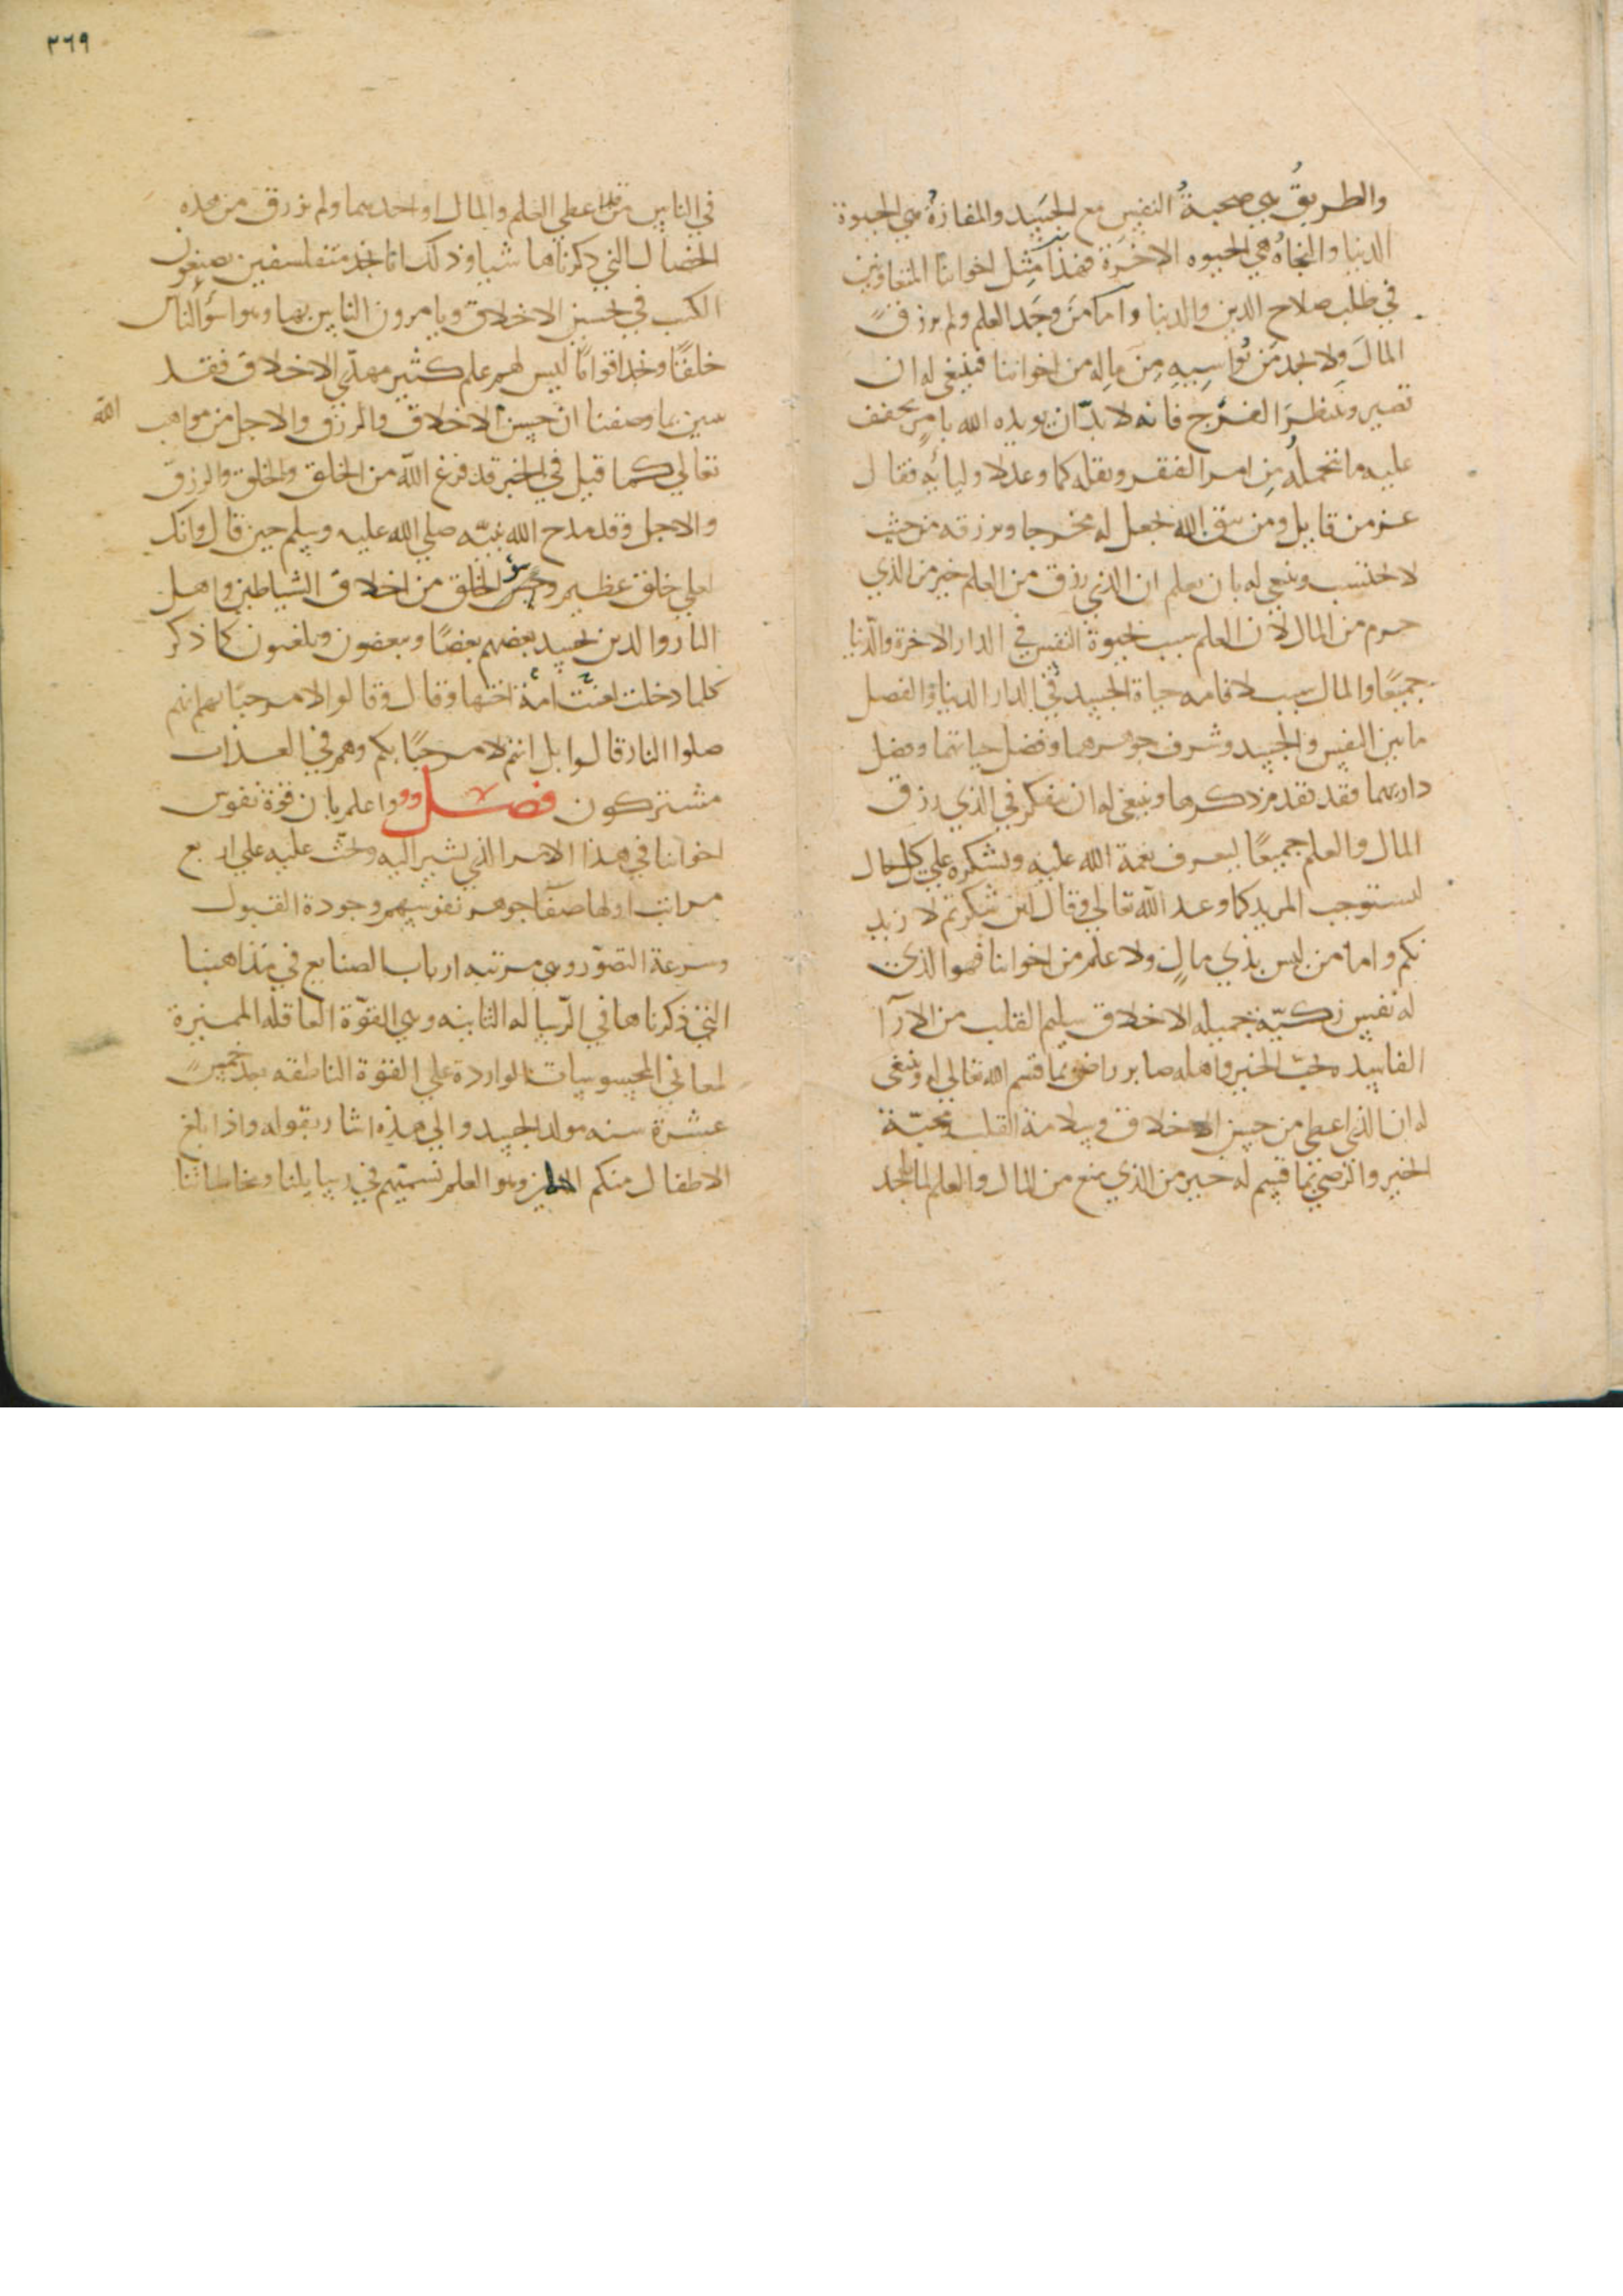 والطريقُ هي صحبةُ النفسِ مع الجسَد والمفازةُ هي الحيوة
الدنيا والنجاةُ هي الحيوه الاخَرة فهذا مَثِل اخواننا المتعاونين
في طلب صلاح الدين والدنيا وامّا مَن وَجَد العلم ولم يرزق
المالَ ولا يجد مَن يُواسِيهِ مِن مالِه من اخواننا فينبغي له ان
تصبر وينتظرَ الفرَج فانه لا بدّ ان يويده الله بامرٍ يخفف
عليه ما يتحملُه مِن امر الفقر وثقله كما وعد لاوليائه فقال
عز من قايل ومن يتق الله يجعل له مخرجا ويرزقه من حيث
لا يحتسب وينبغي له بان يعلم ان الذي رزق من العلم خير من الذي
حرم من المال لان العلم سبب لحيوة النفس في الدار الاخرة والدنيا
جميعًا والمال سبب لاقامه حياة الجسد في الدار الدنيا والفصل
ما بين النفس والجسد وشرف جوهرهما وفضل حياتهما وفضل
داريهما فقد تقدم ذكرها وينبغي له ان يفكر في الذي رزق
المال والعلم جميعًا ليعرف نعمة الله عليه ويشكره علي كل حال
ليستوجب المزيد كما وعد الله تعالي وقال لئن شكرتم لازيد
نكم واما من ليس بذي مالٍ ولا علم من اخواننا فهو الذي
له نفس زكيّة جميله الاخلاق سليم القلب من الارآ
الفاسده محبّ الخير واهله صابر راضي بما قسم الله تعالي له وينبغي
له ان الذي اعطي من حسن الاخلاق وسلامة القلب ومحبّة
الخير والرضي بما قسم له خير من الذي منع من المال والعلم لما نجد
٣٦٩
في الناس من قد اعطي العلم والمال او احدهما ولم يرزق من هذه
الخصال التي ذكرناها شيا وذلك انا نجد متفلسفين يصنفون
الكتب في حسن الاخلاق ويامرون الناس بها وهو اسؤ الناس
خلقًا ونجد اقوامًا ليس لهم علم كثير مهذّبي الاخلاق فقد
تبين بما وصفنا ان حسن الاخلاق والرزق والاجل من مواهب الله
تعالي كما قيل في الخبر قد فرغ الله من الخلق والخلق والرزق
والاجل وقد مدح الله نبيّه صلي الله عليه وسلم حين قال وانك
لعلي خلق عظيم وسؤ الخلق من اخلاق الشياطين واهل
النار والذين يحسد بعضهم بعضًا ويبغضون ويلعنون كما ذكر
كلما دخلت امة لعنت اختها وقال وقالوا لا مرحبًا بهم انهم
صلوا النار قالوا بل انتم لا مرحبًا بكم وهم في العذاب
مشتركون فصل واعلم بان قوة نفوس
اخواننا في هذا الامر الذي نشير اليه ونحثّ عليه علي اربع
مراتب اولها صفآ جوهر نفوسهم وجودة القبول
وسرعة التصوّر وهي مرتبه ارباب الصنايع في مذاهبنا
التي ذكرناها في الرساله الثانيه وهي القوّة العاقله المميزة
لمعاني المحسوسات الواردة علي القوة الناطقه بعد خمس
عشرة سنه مولد الجسد والي هذه اشار بقوله واذا بلغ
الاطفال منكم الحلم وهو العلم نسمّيهم في رسايلنا ومخاطباتنا